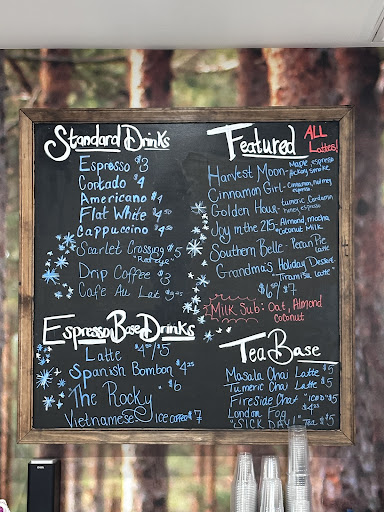 Standard Drinks
Espresso $3
Cortado $4
Americano $4
Flat White $4.50
Cappuccino $4.50
Scarlet Crossing $5
"Red eye"
Drip Coffee $3
Cafe Au Lait
Espresso Base Drinks
Latte $4.50/$5
Spanish Bombon $4.25
"The Rocky" $6
Vietnamese Ice coffee $7
Featured ALL Lattes!
Harvest Moon - Maple, espresso
Hickory smoke
Cinnamon Girl - Cinnamon, nutmeg,
espresso
Golden Hour - tumeric, Cardamon
honey, espresso
Joy in the 215 - Almond, mocha
coconut MILK
Southern Belle - Pecan Pie
Latte
Grandma's Holiday Dessert
"Tiramisu latte"
$6.50/$7
MILK Sub: Oat, Almond
Coconut
Tea Base
Masala Chai Latte $5
Tumeric Chai Latte $5
Fireside Chai "ICED" $5
London Fog $4.25
"SICK DAY!" Tea $5